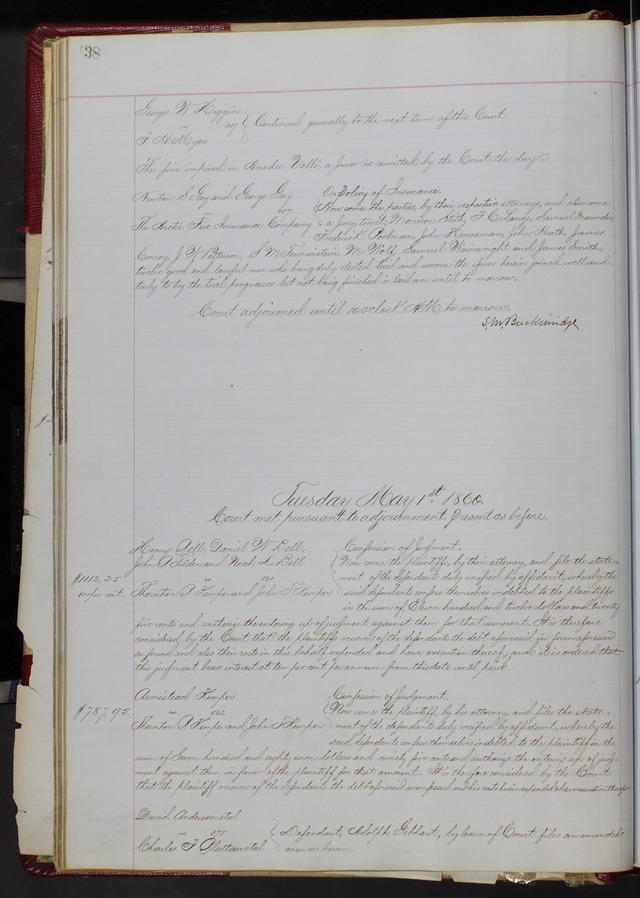 38
George W Higgins
vs 217 Continued generally to the next term of this Court
F H Myers
The fine imposed on Amedee Valle, a Juror is remitted by the Court this day.
Newton S Gay and George Gay On Policy of Insurance.
vs Now come the parties, by their respective attorneys, and also come
The Arctic Fire Insurance Company a Jury, to wit; Morrison Stith, F C Lange, Samuel Saunders,
Frederick Poolman, John Houseman, John Heath, James
Conroy, J Y Patterson, S M Turnstein, M Wolf, Samuel Wainwright and James Smith,
twelve good and lawful men who being duly elected tried and sworn the issues herein joined well and
truly to try the trial progresses but not being finished is laid over until to morrow.
Court adjourned until 10 o'clock A.M. to morrow.
S. M. Breckinridge
Tuesday May 1st 1860.
Court met, pursuant to adjournment, Present as before.
Henry Bell, Daniel W Bell, Confession of Judgment.
John P Tilden and Noah D Bell Now come the plaintiffs, by their attorney, and file the state-
$1112,25 vs 121 ment of the defendants duly verified by affidavit, whereby the
10 per cent. Thornton P Kemper and John F Kemper said defendants confess themselves indebted to the plaintiffs
in the sum of Eleven hundred and twelve dollars and twenty
five cents and authorize the entering up of judgment against them for that amount. It is therefore
considered by the Court that the plaintiffs recover of the defendants the debt aforesaid in form aforesaid
as found and also their costs in this behalf expended and have execution therefor; and it is ordered that
this judgment bear interest at ten per cent per annum from this date until paid.
Armistead Kemper Confession of Judgment.
$787,95. vs 522 Now come the plaintiff by his attorney and files the state-
Thornton P Kemper and John F Kemper ment of the defendants duly verified by affidavit, whereby the
said, defendants confess themselves indebted to the plaintiff in the
sum of Seven hundred and eighty seven dollars and ninety five cents and authorize the entering up of judg-
ment against them in favor of the plaintiff for that amount. It is therefore considered by the Court
that the plaintiff recover of the defendants the debt aforesaid as confessed and his costs herein expended & have execution therefor
David Anderson et al
vs 575 Defendant, Adolph Gebhart, by leave of Court files an amended
Charles F Plattau et al answer herein.